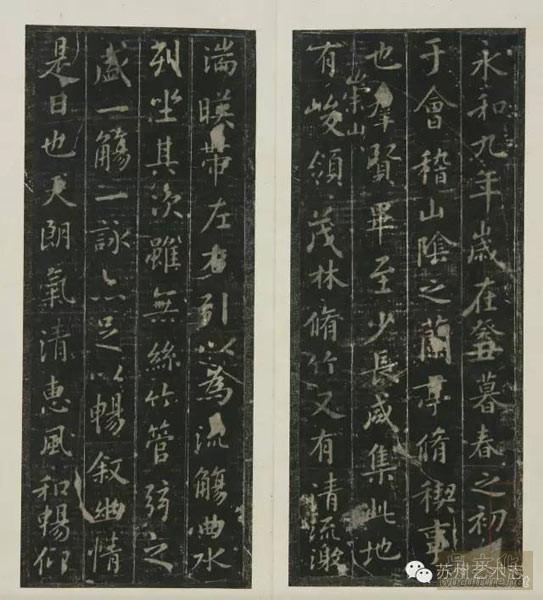 永和九年歲在癸丑暮春之初
于會稽山陰之蘭亭脩禊事
也羣賢畢至少長咸集此地
有崇山峻領茂林脩竹又有清流激
湍暎帶左右引以為流觴曲水
列坐其次雖無絲竹管弦之
盛一觴一詠亦足以暢敘幽情
是日也天朗氣清惠風和暢仰
苏州艺术志